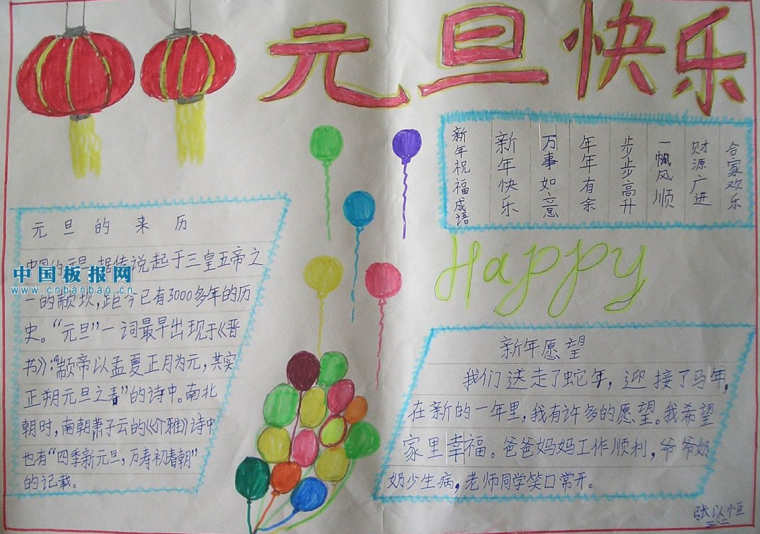 元旦快乐
新年祝福成语
新年快乐
万事如意
年年有余
步步高升
一帆风顺
财源广进
合家欢乐
元旦的来历
中国的元旦,据传说起于三皇五帝之
一的颛顼,距今已有3000多年的历
史。“元旦”一词最早出现于《晋
书》:“颛帝以孟夏正月为元,其实
正朔元旦之春”的诗中。南北
朝时,南朝萧子云的《介雅》诗中
也有“四季新元旦,万寿初春朝”
的记载。
中国板报网
www.cnbanbao.cn
Happy
新年愿望
我们送走了蛇年,迎接了马年,
在新的一年里,我有许多的愿望。我希望
家里幸福。爸爸妈妈工作顺利,爷爷奶
奶少生病,老师同学笑口常开。
张以恒